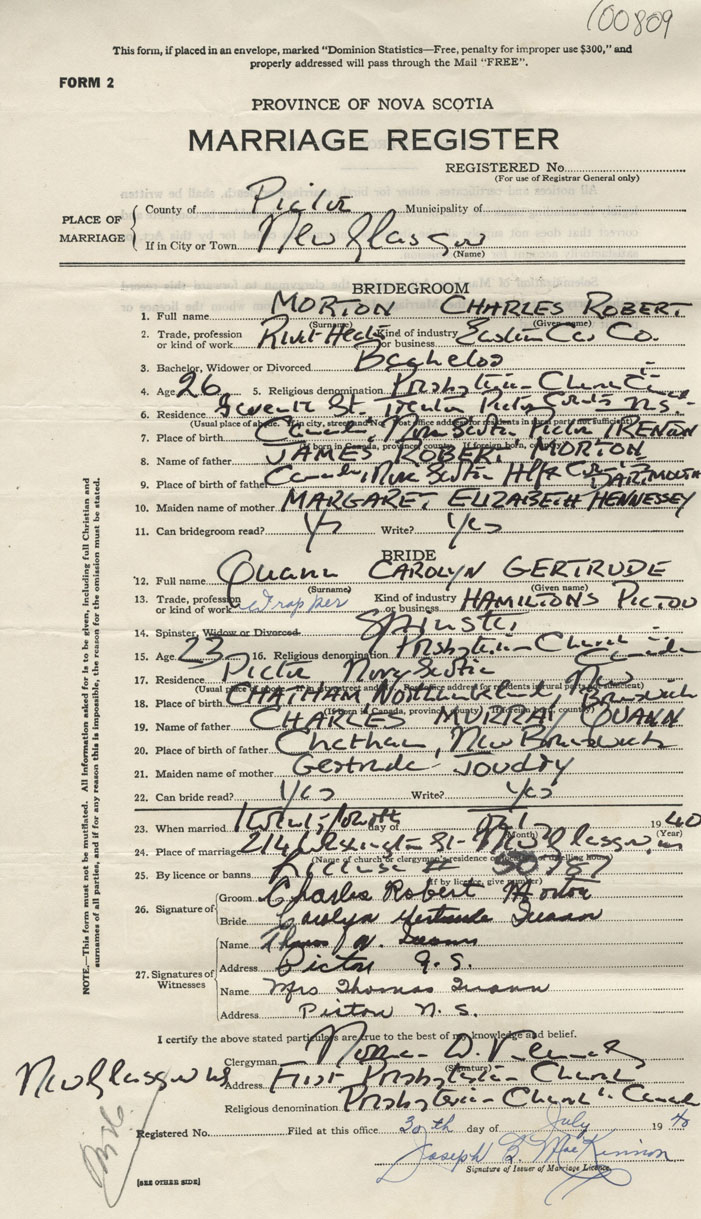 100809
This form, if placed in an envelope, marked "Dominion Statistics—Free, penalty for improper use $300," and
properly addressed will pass through the Mail "FREE".
FORM 2
PROVINCE OF NOVA SCOTIA
MARRIAGE REGISTER
REGISTERED No.
(For use of Registrar General only)
PLACE OF MARRIAGE
County of Pictou Municipality of
If in City or Town New Glasgow
(Name)
BRIDEGROOM
1. Full name MORTON CHARLES ROBERT
(Surname) (Given name)
2. Trade, profession or kind of work Rivet-Heater Kind of industry or business Eastern Car Co.
3. Bachelor, Widower or Divorced Bachelor
4. Age 26 5. Religious denomination Presbyterian Church in Canada
6. Residence Seventh St. Trenton Pictou County N.S.
(Usual place of abode. If in city, street and No. Post office address for residents in rural part not sufficient)
7. Place of birth Canada, Nova Scotia, Pictou TRENTON
(If born in Canada, province, county. If foreign born, country)
8. Name of father JAMES ROBERT MORTON
9. Place of birth of father Canada, Nova Scotia Hlfx Co. DARTMOUTH
10. Maiden name of mother MARGARET ELIZABETH HENNESSEY
11. Can bridegroom read? Yes Write? Yes
BRIDE
12. Full name Quann CAROLYN GERTRUDE
(Surname) (Given name)
13. Trade, profession or kind of work Wrapper Kind of industry or business HAMILTONS PICTOU
14. Spinster, Widow or Divorced Spinster
15. Age 23 16. Religious denomination Presbyterian Church in Canada
17. Residence Pictou Nova Scotia
(Usual place of abode. If in city, street and No. Post office address for residents in rural part not sufficient)
18. Place of birth CHATHAM Northumberland, New Brunswick
(If born in Canada, province, county. If foreign born, country)
19. Name of father CHARLES MURRAY QUANN
20. Place of birth of father Chatham, New Brunswick
21. Maiden name of mother Gertrude Joudry
22. Can bride read? Yes Write? Yes
23. When married day of July 1940
(Month) (Year)
24. Place of marriage 214 Washington St. New Glasgow, NS
(Name of church or clergyman's residence or location of dwelling house)
25. By licence or banns License #
(If by licence, give number)
26. Signature of
Groom Charles Robert Morton
Bride Carolyn Gertrude Quann
27. Signatures of Witnesses
Name Thomas Quann
Address Pictou N.S.
Name Mrs Thomas Quann
Address Pictou N.S.
I certify the above stated particulars are true to the best of my knowledge and belief.
Clergyman Norman D. Kennedy
(Signature)
New Glasgow NS Address First Presbyterian Church
Religious denomination Presbyterian Church in Canada
Registered No. Filed at this office 30th day of July 1940
Joseph B. MacKinnon
Signature of Issuer of Marriage Licence.
[SEE OTHER SIDE]
NOTE.—This form must not be mutilated. All information asked for is to be given, including full Christian and
surnames of all parties, and if for any reason this is impossible, the reason for the omission must be stated.